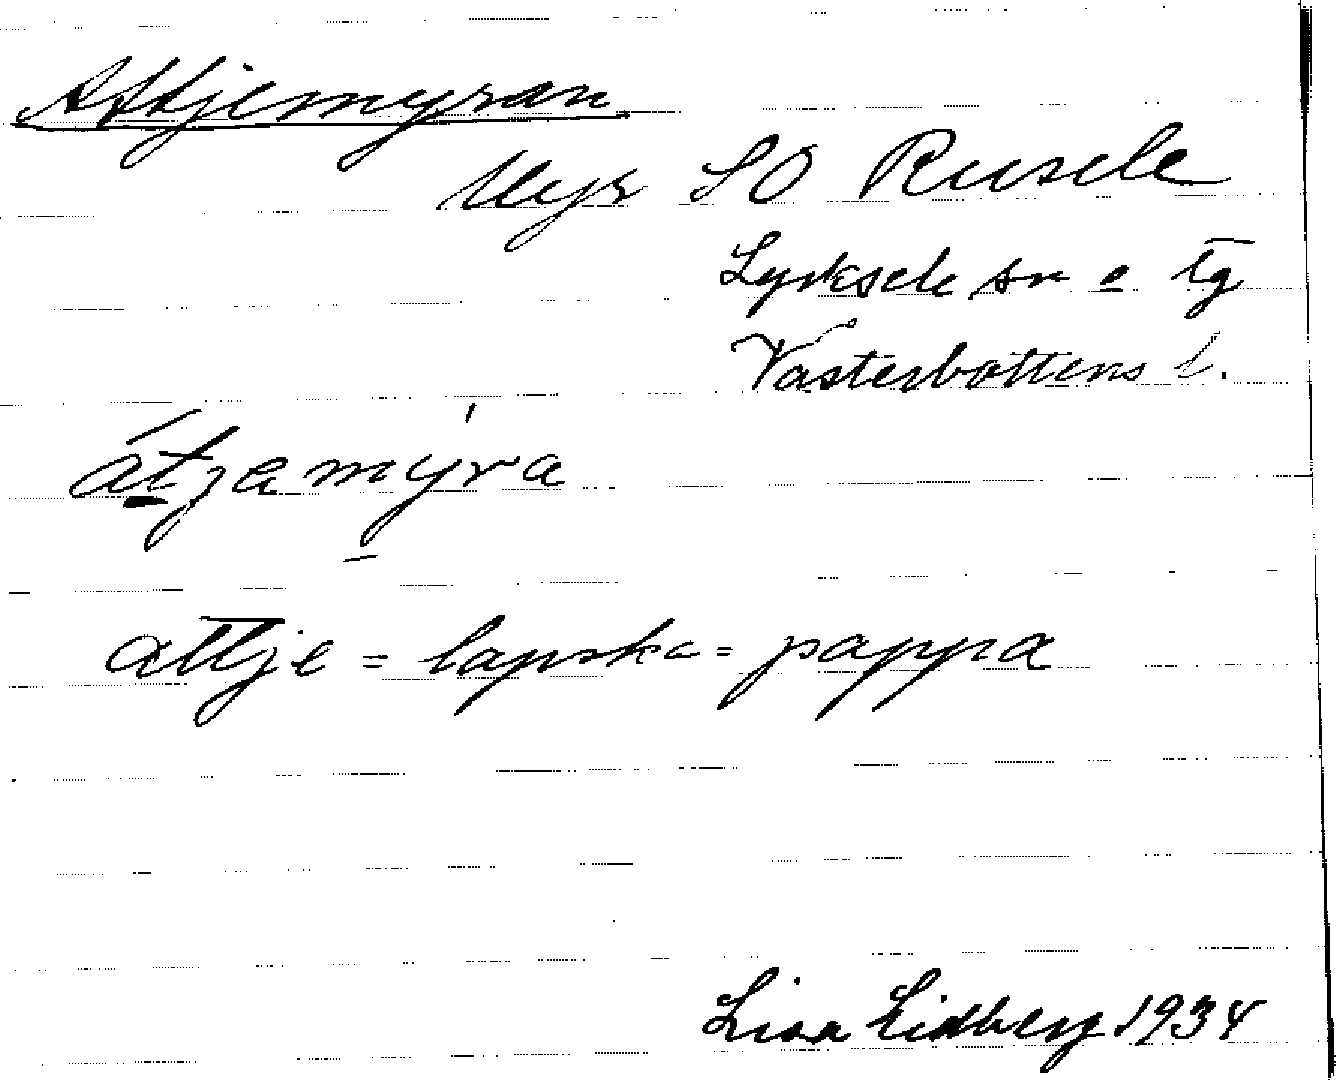 Attjemyran
Myr SO Rusele
Lycksele sn o tg
Västerbottens l.
átjamýra
attje = lapska = pappa
Lisa Lidberg 1934